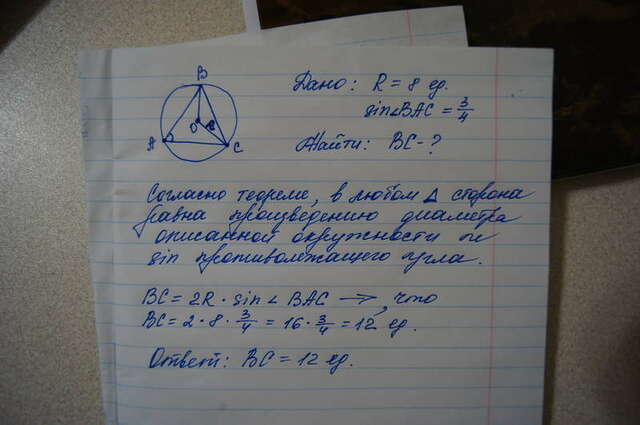 B
O
A
C
Дано: R = 8 ед.
sin∠BAC = 3/4
Найти: BC - ?
Согласно теореме, в любом Δ сторона
равна произведению диаметра
описанной окружности и
sin противолежащего угла.
BC = 2R · sin ∠ BAC →, что
BC = 2 · 8 · 3/4 = 16 · 3/4 = 12 ед.
Ответ: BC = 12 ед.